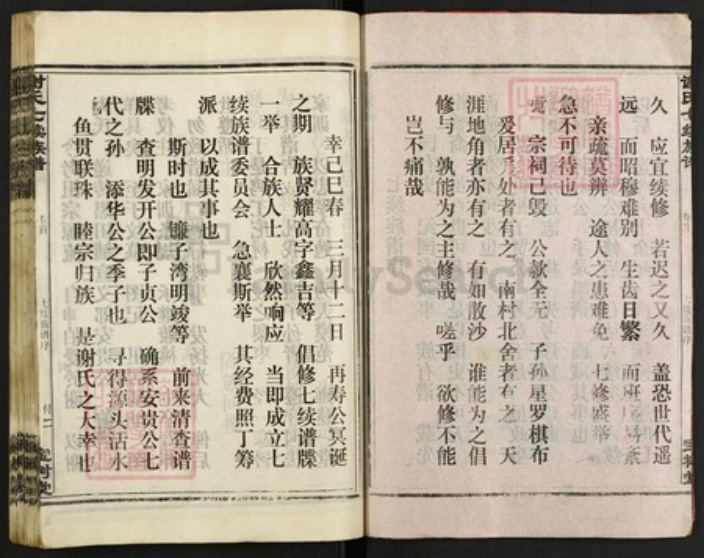 久 应宜续修 若迟之又久 盖恐世代遥
远 而昭穆难别 生齿日繁 而班
亲疏莫辨 途人之患难免 七修盛举
急不可待也
嘆 宗祠已毁 公款全无 子孙星罗棋布
爰居爰处者有之 南村北舍者有之 天
涯地角者亦有之 有如散沙 谁能为之倡
修与 孰能为之主修哉 嗟乎 欲修不能
岂不痛哉
幸己巳春 三月十二日 再寿公冥诞
之期 族贤耀高字鑫吉等 倡修七续谱牒
一举 合族人士 欣然响应 当即成立七
续族谱委员会 急襄斯举 其经费照丁筹
派 以成其事也
斯时也 镰子湾明竣等 前来清查谱
牒 查明发开公即子贞公 确系安贵公七
代之孙 添华公之季子也 寻得源头活水
鱼贯联珠 睦宗归族 是谢氏之大幸也
谢氏七续族谱